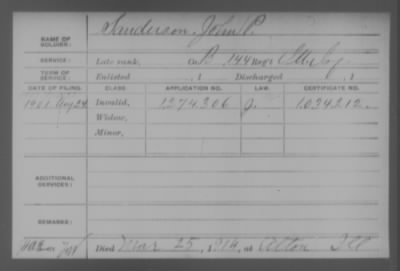 NAME OF SOLDIER: Sanderson, John P.
SERVICE: Late rank, Co. B, 144 Reg't Ills. Inf.
TERM OF SERVICE: Enlisted , 1 Discharged , 1
DATE OF FILING. CLASS. APPLICATION NO. LAW. CERTIFICATE NO.
1901 Aug 24 Invalid, 1274306 J. 1034212.
Widow,
Minor,
ADDITIONAL SERVICES:
REMARKS:
Died Mar 25, 1916, at Alton Ill